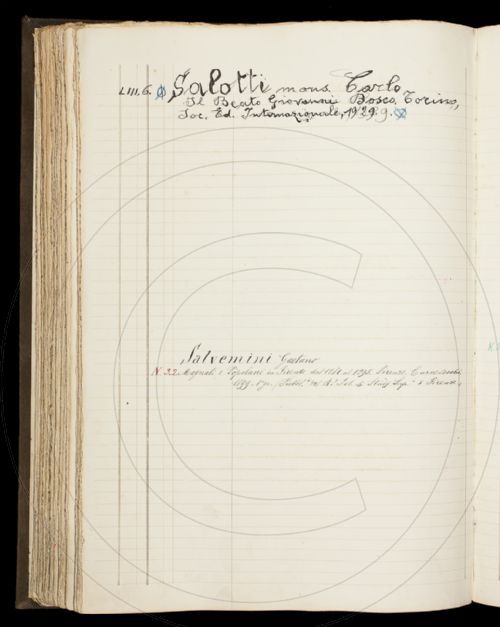 LIII. 6. Salotti mons. Carlo
Il Beato Giovanni Bosco. Torino,
Soc. Ed. Internazionale, 1929. 9.
Salvemini Gaetano
N. 32. Magnati e Popolani in Firenze dal 1280 al 1295. Firenze, Carnesecchi
1899. (Pubbl. del R. Ist. di Studj Sup. di Firenze)